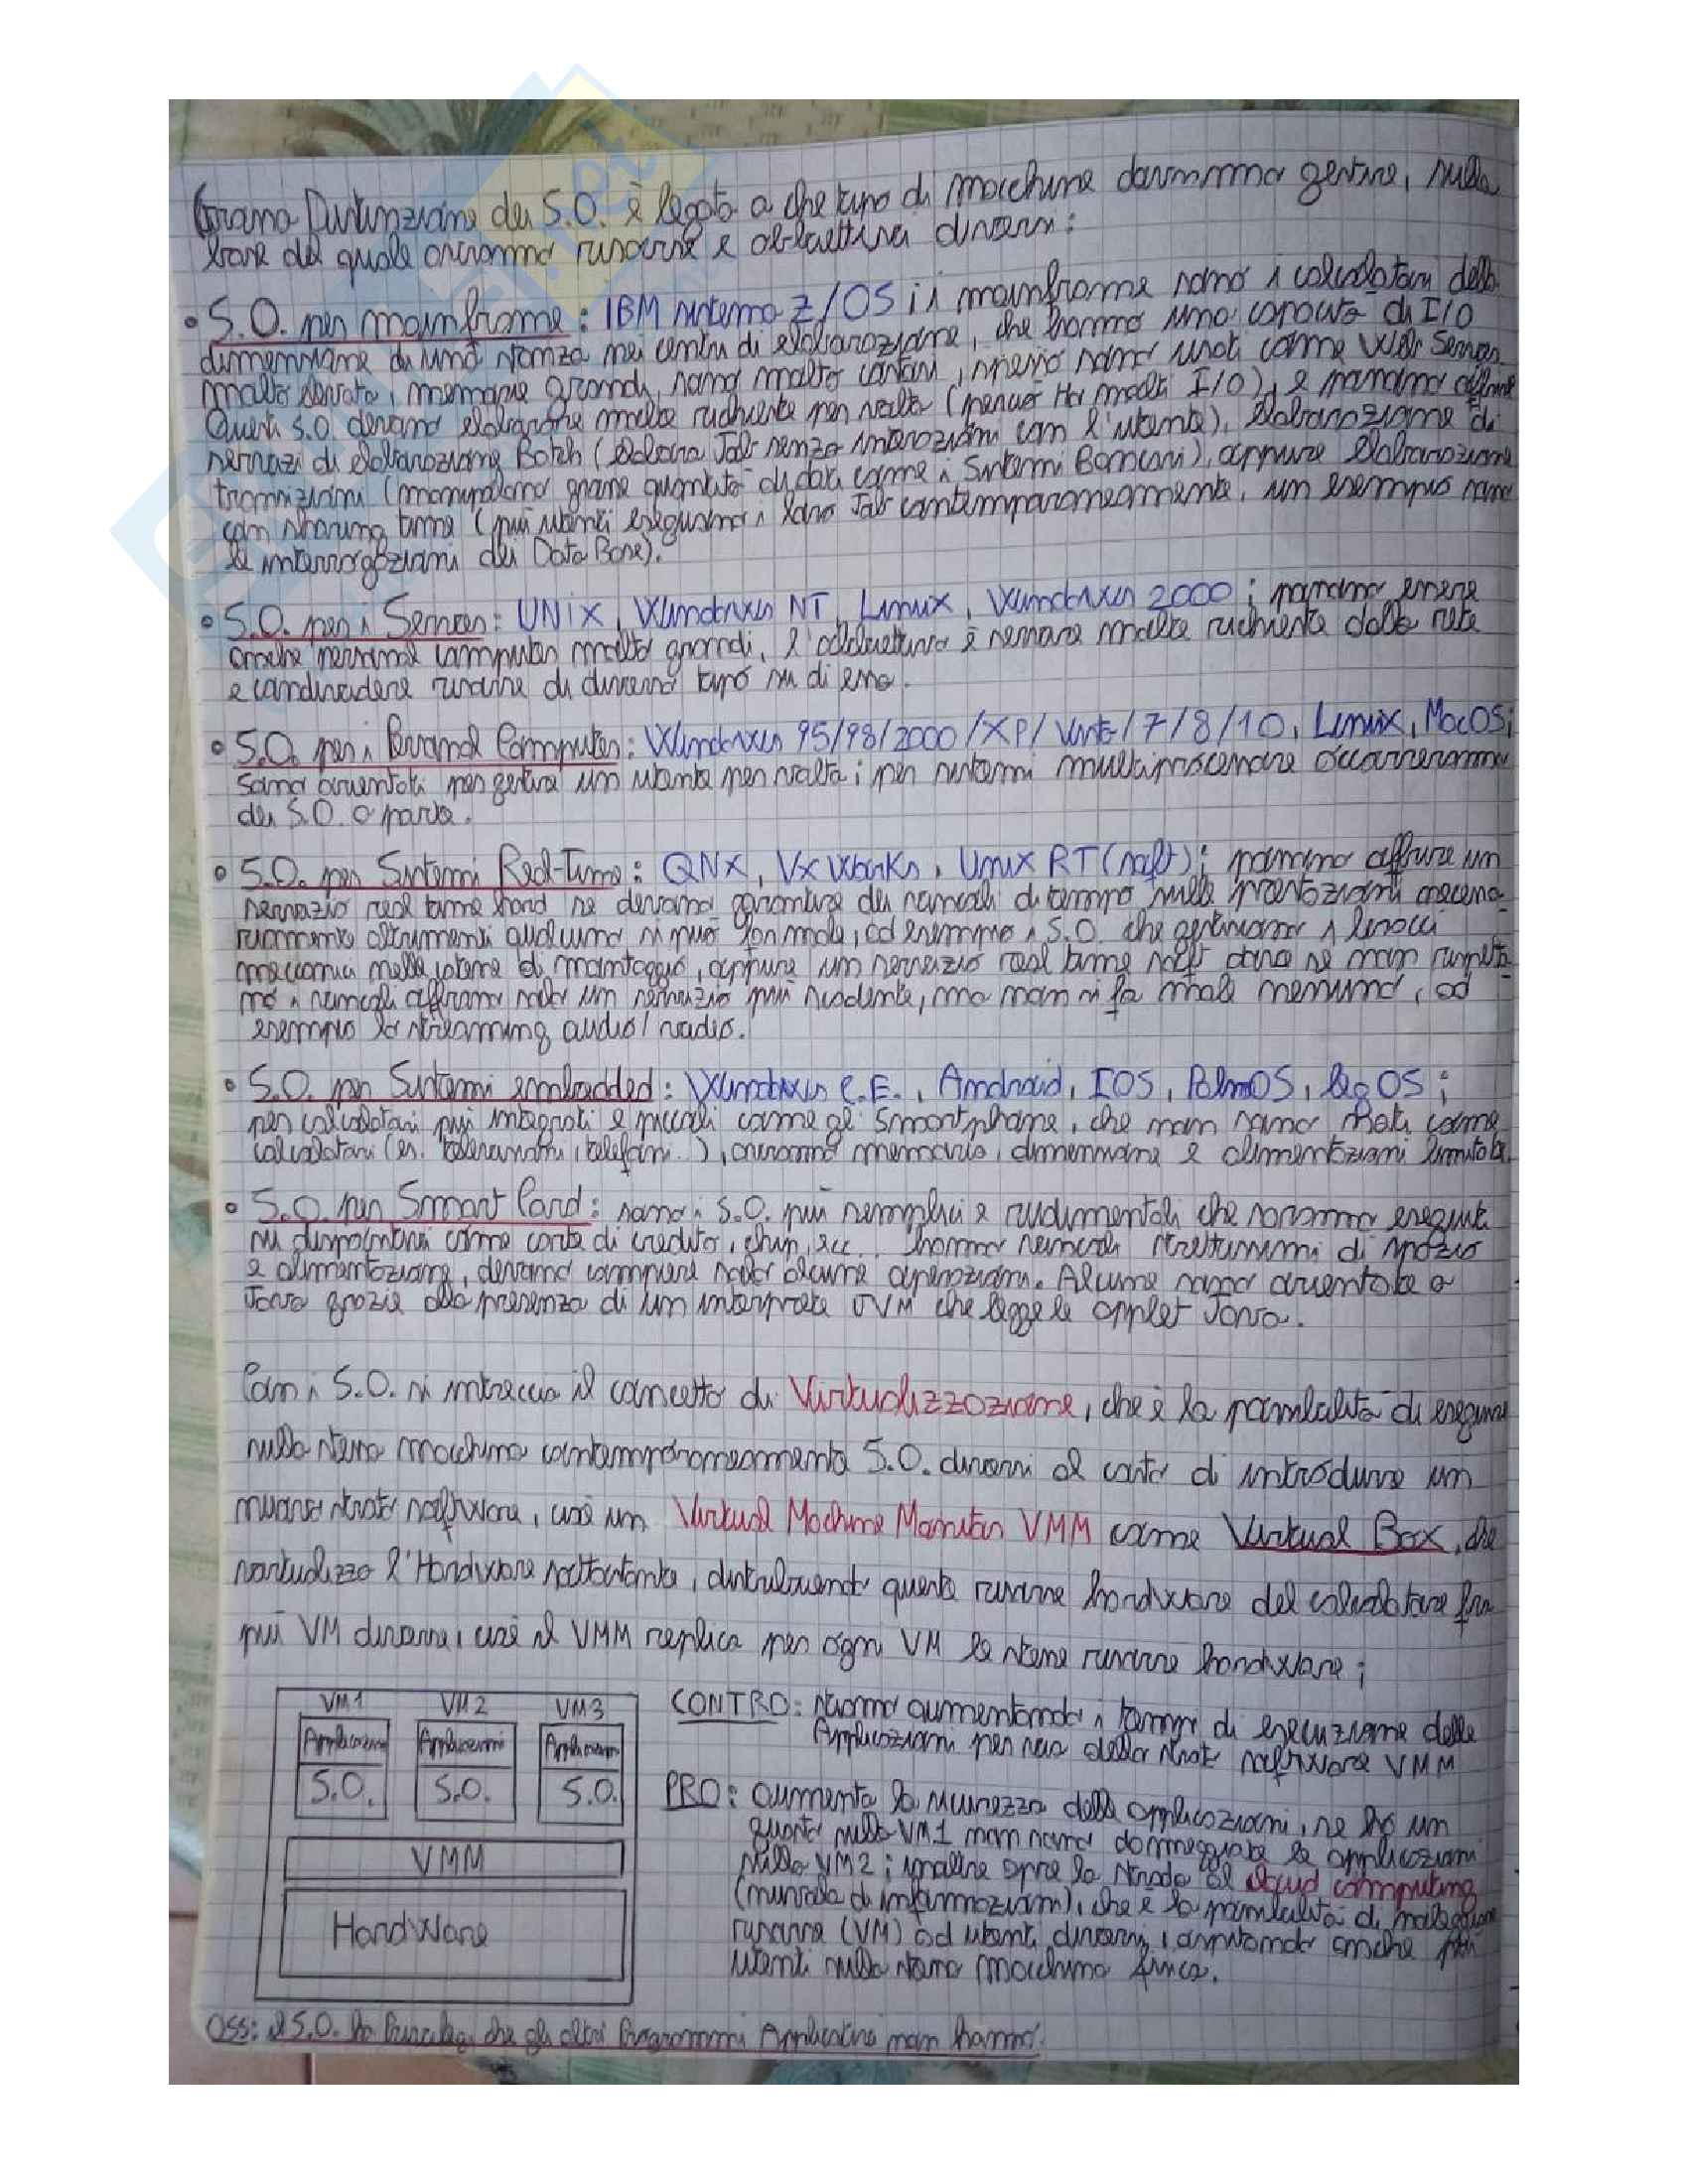 Grana Distinzione dei S.O. è legata a che tipo di macchine dovranno gestire, sulla
base del quale avranno risorse e obbiettivi diversi:
• S.O. per mainframe: IBM sistema Z/OS; i mainframe sono i calcolatori della
dimensione di una stanza nei centri di elaborazione, che hanno una capacità di I/O
molto elevata, memorie grandi, sono molto costosi, spesso sono usati come Web Server.
Questi S.O. devono elaborare molte richieste per volta (perciò Ha molti I/O), e possono offrire
servizi di elaborazione Batch (elabora Job senza interazioni con l'utente), elaborazione di
transizioni (manipolano grane quantità di dati come i Sistemi Bancari), oppure elaborazione
con sharing time (più utenti eseguono i loro Job contemporaneamente, un esempio sono
le interrogazioni dei Data Base).
• S.O. per i Server: UNIX, Windows NT, Linux, Windows 2000; possono essere
anche personal computer molto grandi, l'obbiettivo è servire molte richieste dalla rete
e condividere risorse di diverso tipo su di essa.
• S.O. per i Personal Computer: Windows 95/98/2000/XP/Vista/7/8/10, Linux, MacOS;
Sono orientati per gestire un utente per volta; per sistemi multiprocessore occorreranno
dei S.O. a parte.
• S.O. per Sistemi Real-Time: QNX, VxWorks, Unix RT (soft); possono offrire un
servizio real time hard se devono garantire dei vincoli di tempo nelle prestazioni
altrimenti qualcuno si può far male, ad esempio i S.O. che gestiscono i bracci
meccanici nelle catene di montaggio, oppure un servizio real time soft dove se non
i vincoli offrono solo un servizio più scadente, ma non si fa male nessuno, ad
esempio lo streaming audio/radio.
• S.O. per Sistemi embedded: Windows C.E., Android, IOS, PalmOS, LegOS;
per calcolatori più integrati e piccoli come gli Smartphone, che non sono usati come
calcolatori (es. televisori, telefoni..), avranno memoria, dimensione e alimentazioni limitate.
• S.O. per Smart Card: sono i S.O. più semplici e rudimentali che saranno eseguiti
su dispositivi come carte di credito, chip, ecc.. hanno vincoli strettissimi di spazio
e alimentazione, devono compiere solo alcune operazioni. Alcune sono orientate a
Java grazie alla presenza di un interprete JVM che legge le applet Java.
Con i S.O. si intreccia il concetto di Virtualizzazione, che è la possibilità di eseguire
sulla stessa macchina contemporaneamente S.O. diversi al costo di introdurre un
nuovo strato software, cioè un Virtual Machine Monitor VMM come Virtual Box, che
virtualizza l'Hardware sottostante, distribuendo queste risorse hardware del calcolatore fra
più VM diverse, cioè il VMM replica per ogni VM le stesse risorse hardware;
VM1 VM2 VM3
Applicazioni Applicazioni Applicazioni
S.O. S.O. S.O.
VMM
Hardware
CONTRO: stiamo aumentando i tempi di esecuzione delle
Applicazioni per via dello strato software VMM
PRO: aumenta la sicurezza delle applicazioni, se ho un
guasto sulla VM1 non sono danneggiate le applicazioni
sulla VM2; inoltre apre la strada al cloud computing
(nuvola di informazioni), che è la possibilità di noleggiare
risorse (VM) ad utenti diversi, ospitando anche più
utenti sulla stessa macchina fisica.
OSS: il S.O. ha Privilegi che gli altri Programmi Applicativi non hanno.